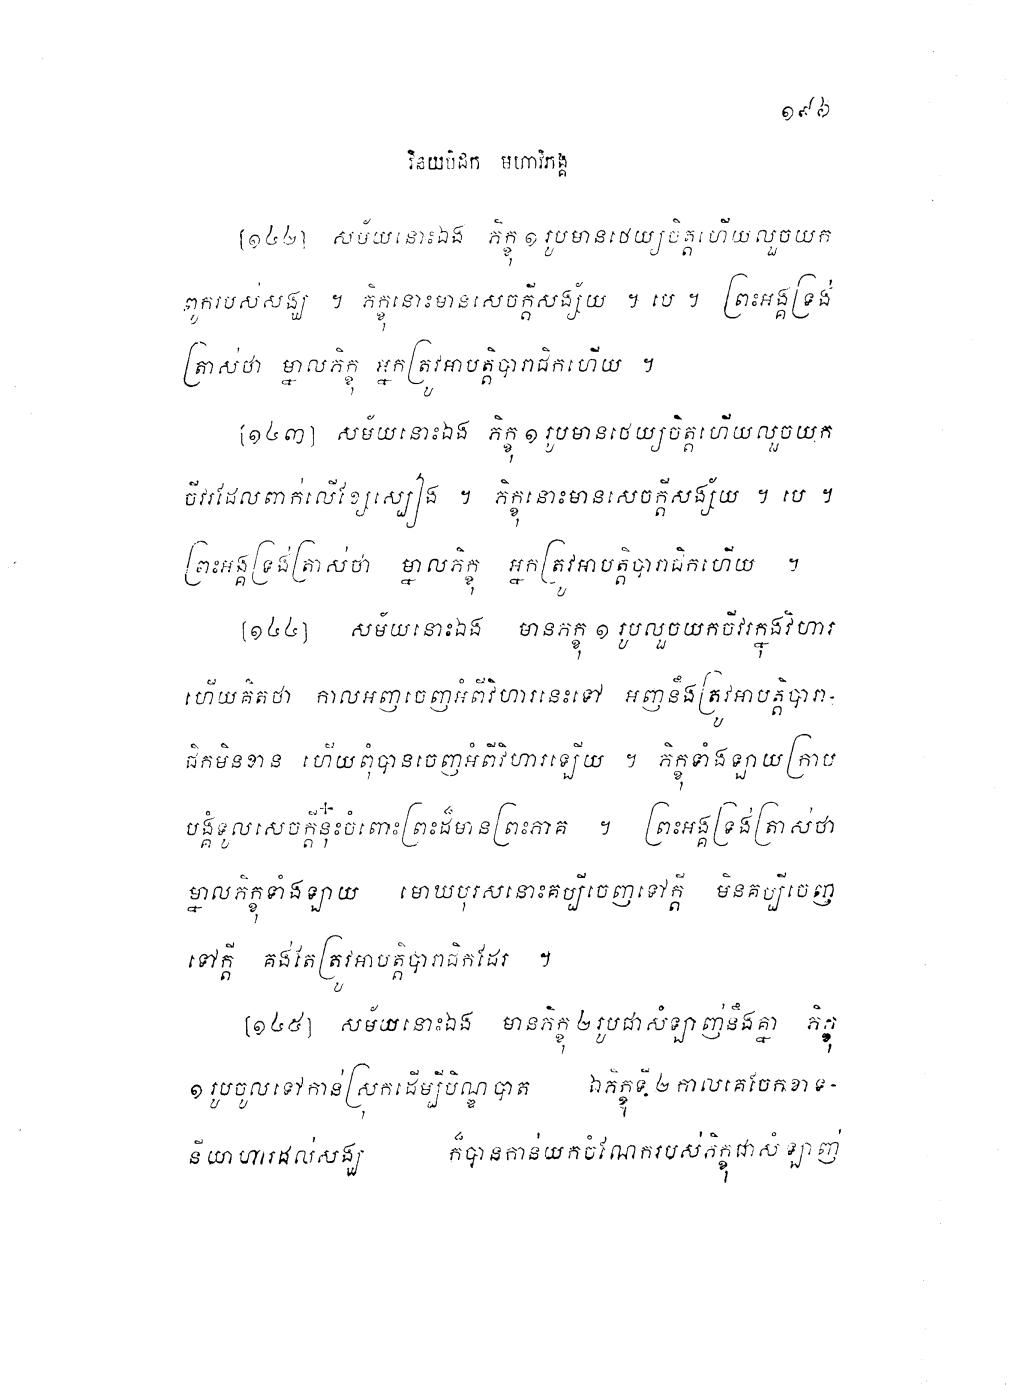 ១៩៦
វិនយបិដក មហាវិភង្គ
[១៤២] សម័យនោះឯង ភិក្ខុ ១ រូបមានថេយ្យចិត្តហើយលួចយក
ពូករបស់សង្ឃ ។ ភិក្ខុនោះមានសេចក្តីសង្ស័យ ។ បេ ។ ព្រះអង្គទ្រង់
ត្រាស់ថា ម្នាលភិក្ខុ អ្នកត្រូវអាបត្តិបារាជិកហើយ ។
[១៤៣] សម័យនោះឯង ភិក្ខុ ១ រូបមានថេយ្យចិត្តហើយលួចយក
ចីវរដែលពាក់លើខ្សែស្បៀង ។ ភិក្ខុនោះមានសេចក្តីសង្ស័យ ។ បេ ។
ព្រះអង្គទ្រង់ត្រាស់ថា ម្នាលភិក្ខុ អ្នកត្រូវអាបត្តិបារាជិកហើយ ។
[១៤៤] សម័យនោះឯង មានភិក្ខុ ១ រូបលួចយកចីវរក្នុងវិហារ
ហើយគិតថា កាលអញចេញអំពីវិហារនេះទៅ អញនឹងត្រូវអាបត្តិបារា-
ជិកមិនខាន ហើយពុំបានចេញអំពីវិហារឡើយ ។ ភិក្ខុទាំងឡាយក្រាប
បង្គំទូលសេចក្តីនុ៎ះចំពោះព្រះដ៏មានព្រះភាគ ។ ព្រះអង្គទ្រង់ត្រាស់ថា
ម្នាលភិក្ខុទាំងឡាយ មោឃបុរសនោះគប្បីចេញទៅក្តី មិនគប្បីចេញ
ទៅក្តី គង់តែត្រូវអាបត្តិបារាជិកដែរ ។
[១៤៥] សម័យនោះឯង មានភិក្ខុ ២ រូបជាសំឡាញ់នឹងគ្នា ភិក្ខុ
១ រូបចូលទៅកាន់ស្រុកដើម្បីបិណ្ឌបាត ឯភិក្ខុទី ២ កាលគេចែកខាទ-
នីយាហារដល់សង្ឃ ក៏បានកាន់យកចំណែករបស់ភិក្ខុជាសំឡាញ់